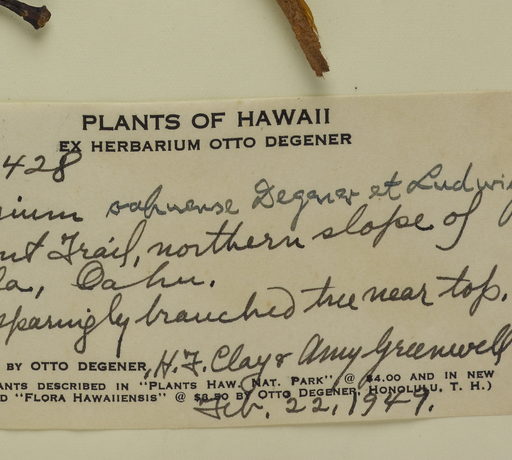 PLANTS OF HAWAII
EX HERBARIUM OTTO DEGENER
428
rium oahuense Degener et Ludwig
nt Trail, northern slope of
la, Oahu.
sparingly branched tree near top.
BY OTTO DEGENER, H. F. Clay & Amy Greenwell
ANTS DESCRIBED IN "PLANTS HAW. NAT. PARK" @ $4.00 AND IN NEW
D "FLORA HAWAIIENSIS" @ BY OTTO DEGENER, HONOLULU, T. H.)
Feb. 22, 1949.